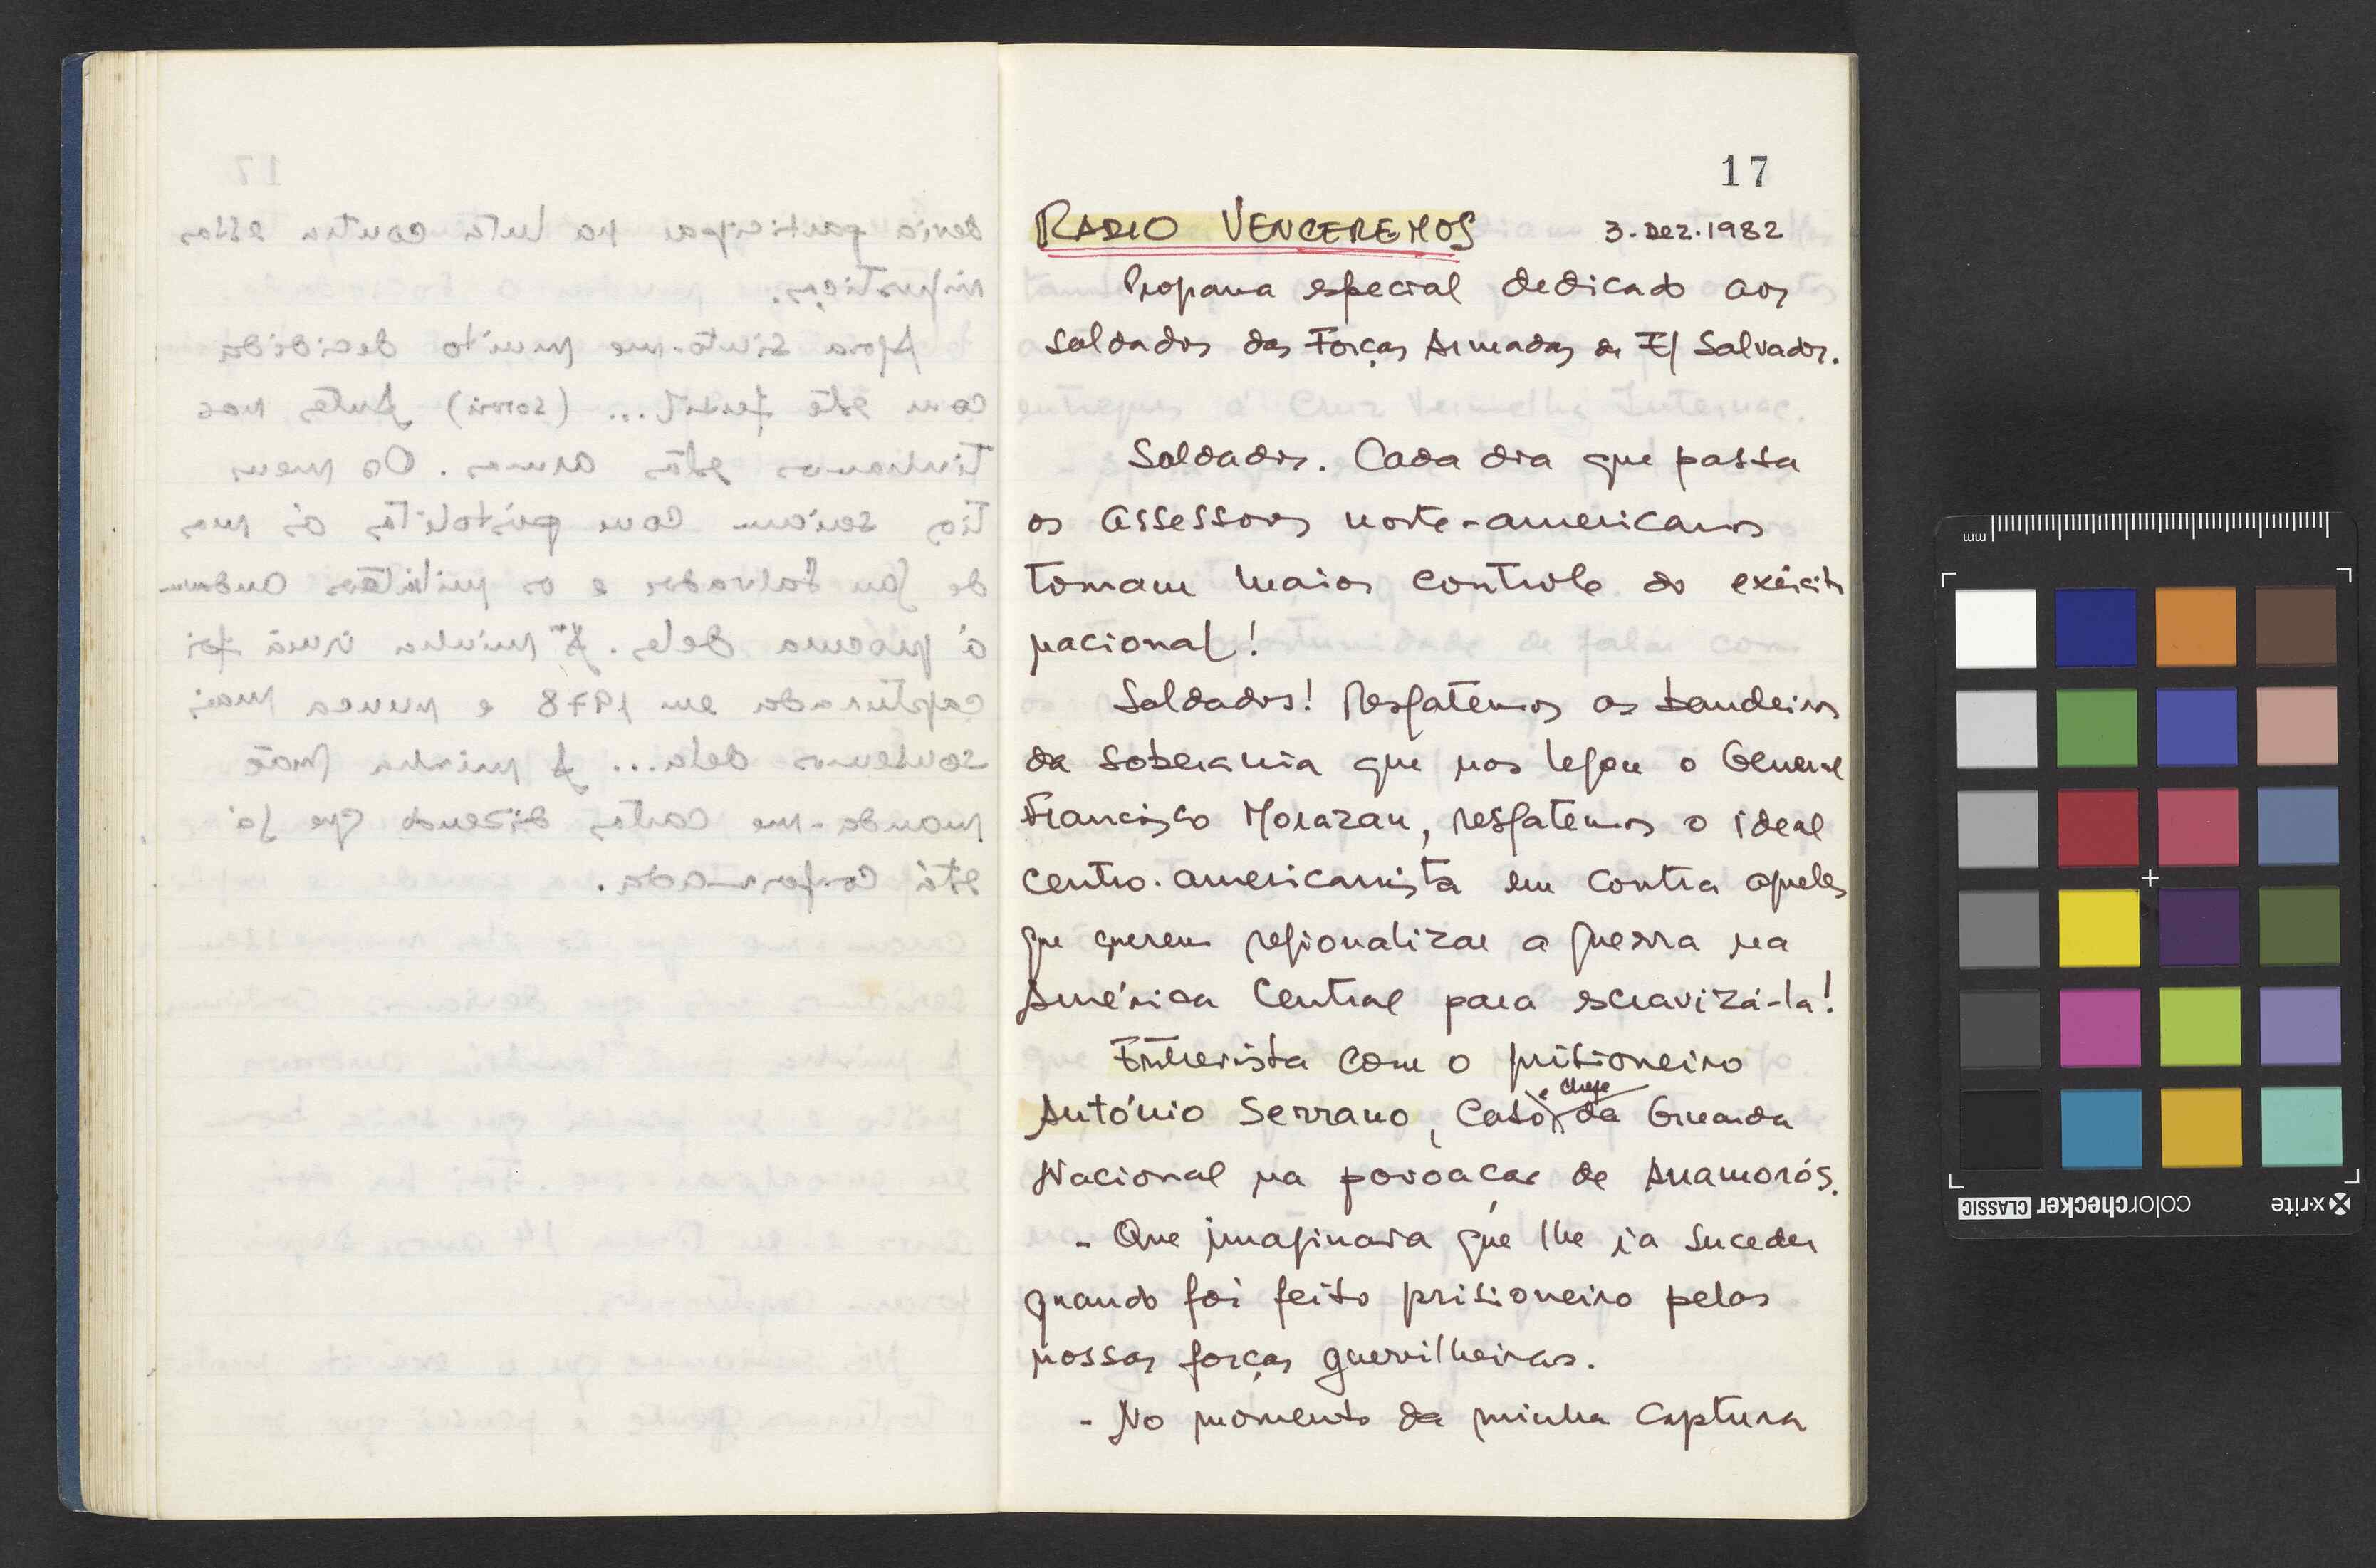 17
RADIO VENCEREMOS 3.DEZ.1982
Programa especial dedicado aos
soldados das Forças Armadas de El Salvador.
Soldados. Cada dia que passa
os assessores norte-americanos
tomam maior controle do exército
nacional!
Soldados! Resgatemos as bandeiras
da soberania que nos legou o General
Francisco Morazan, resgatemos o ideal
centro-americanista em contra aqueles
que querem regionalizar a guerra na
América Central para escravizá-la!
Entrevista com o prisioneiro
e chefe
António Serrano, Cabo da Guarda
Nacional na povoaçao de Anamorós.
- Que imaginava que lhe ia suceder
quando foi feito prisioneiro pelas
nossas forças guerrilheiras.
- No momento da minha captura
mm
x-rite
colorchecker CLASSIC